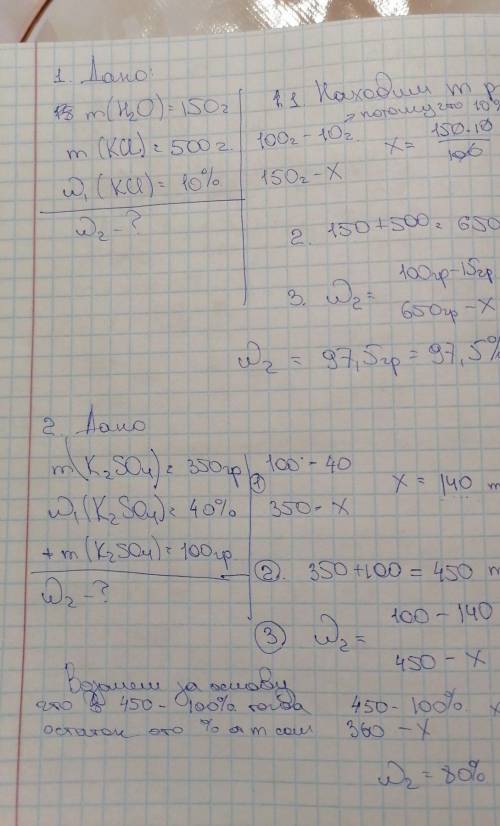 1. Дано:
m(H₂O) = 150г
m(KCl) = 500г.
ω₁(KCl) = 10%
ω₂ - ?
1.1 Находим m р
потому что 10%
100г - 10г
150г - X
X = 150·10 / 100
2. 150+500 = 650
3. ω₂ = 100гр-15гр
650гр - X
ω₂ = 97,5гр = 97,5%
2. Дано
m(K₂SO₄) = 350гр
ω₁(K₂SO₄) = 40%
+ m(K₂SO₄) = 100гр
ω₂ - ?
① 100 - 40
350 - X
X = 140 m
②. 350+100 = 450 m
③ ω₂ = 100 - 140
450 - X
Возьмем за основу
что 450 - 100% тогда
остаток это % от m соли
450 - 100%
360 - X
ω₂ = 80%